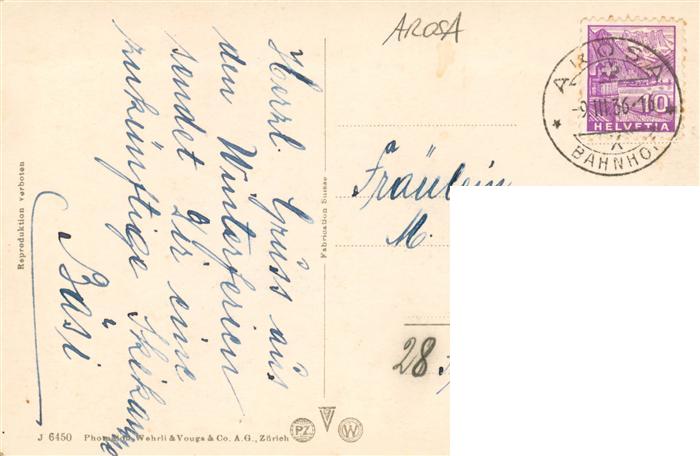 Herzl. Gruss aus
den Winterferien
sendet Dir eine
zukünftige Skikanone
Bäsi
AROSA
AROSA
-9.III.36-16
BAHNHOF
10
HELVETIA
Fräulein
M.
28
Reproduktion verboten
Fabrication Suisse
J 6450 Photoglob-Wehrli & Vouga & Co. A.G., Zürich
PZ
W